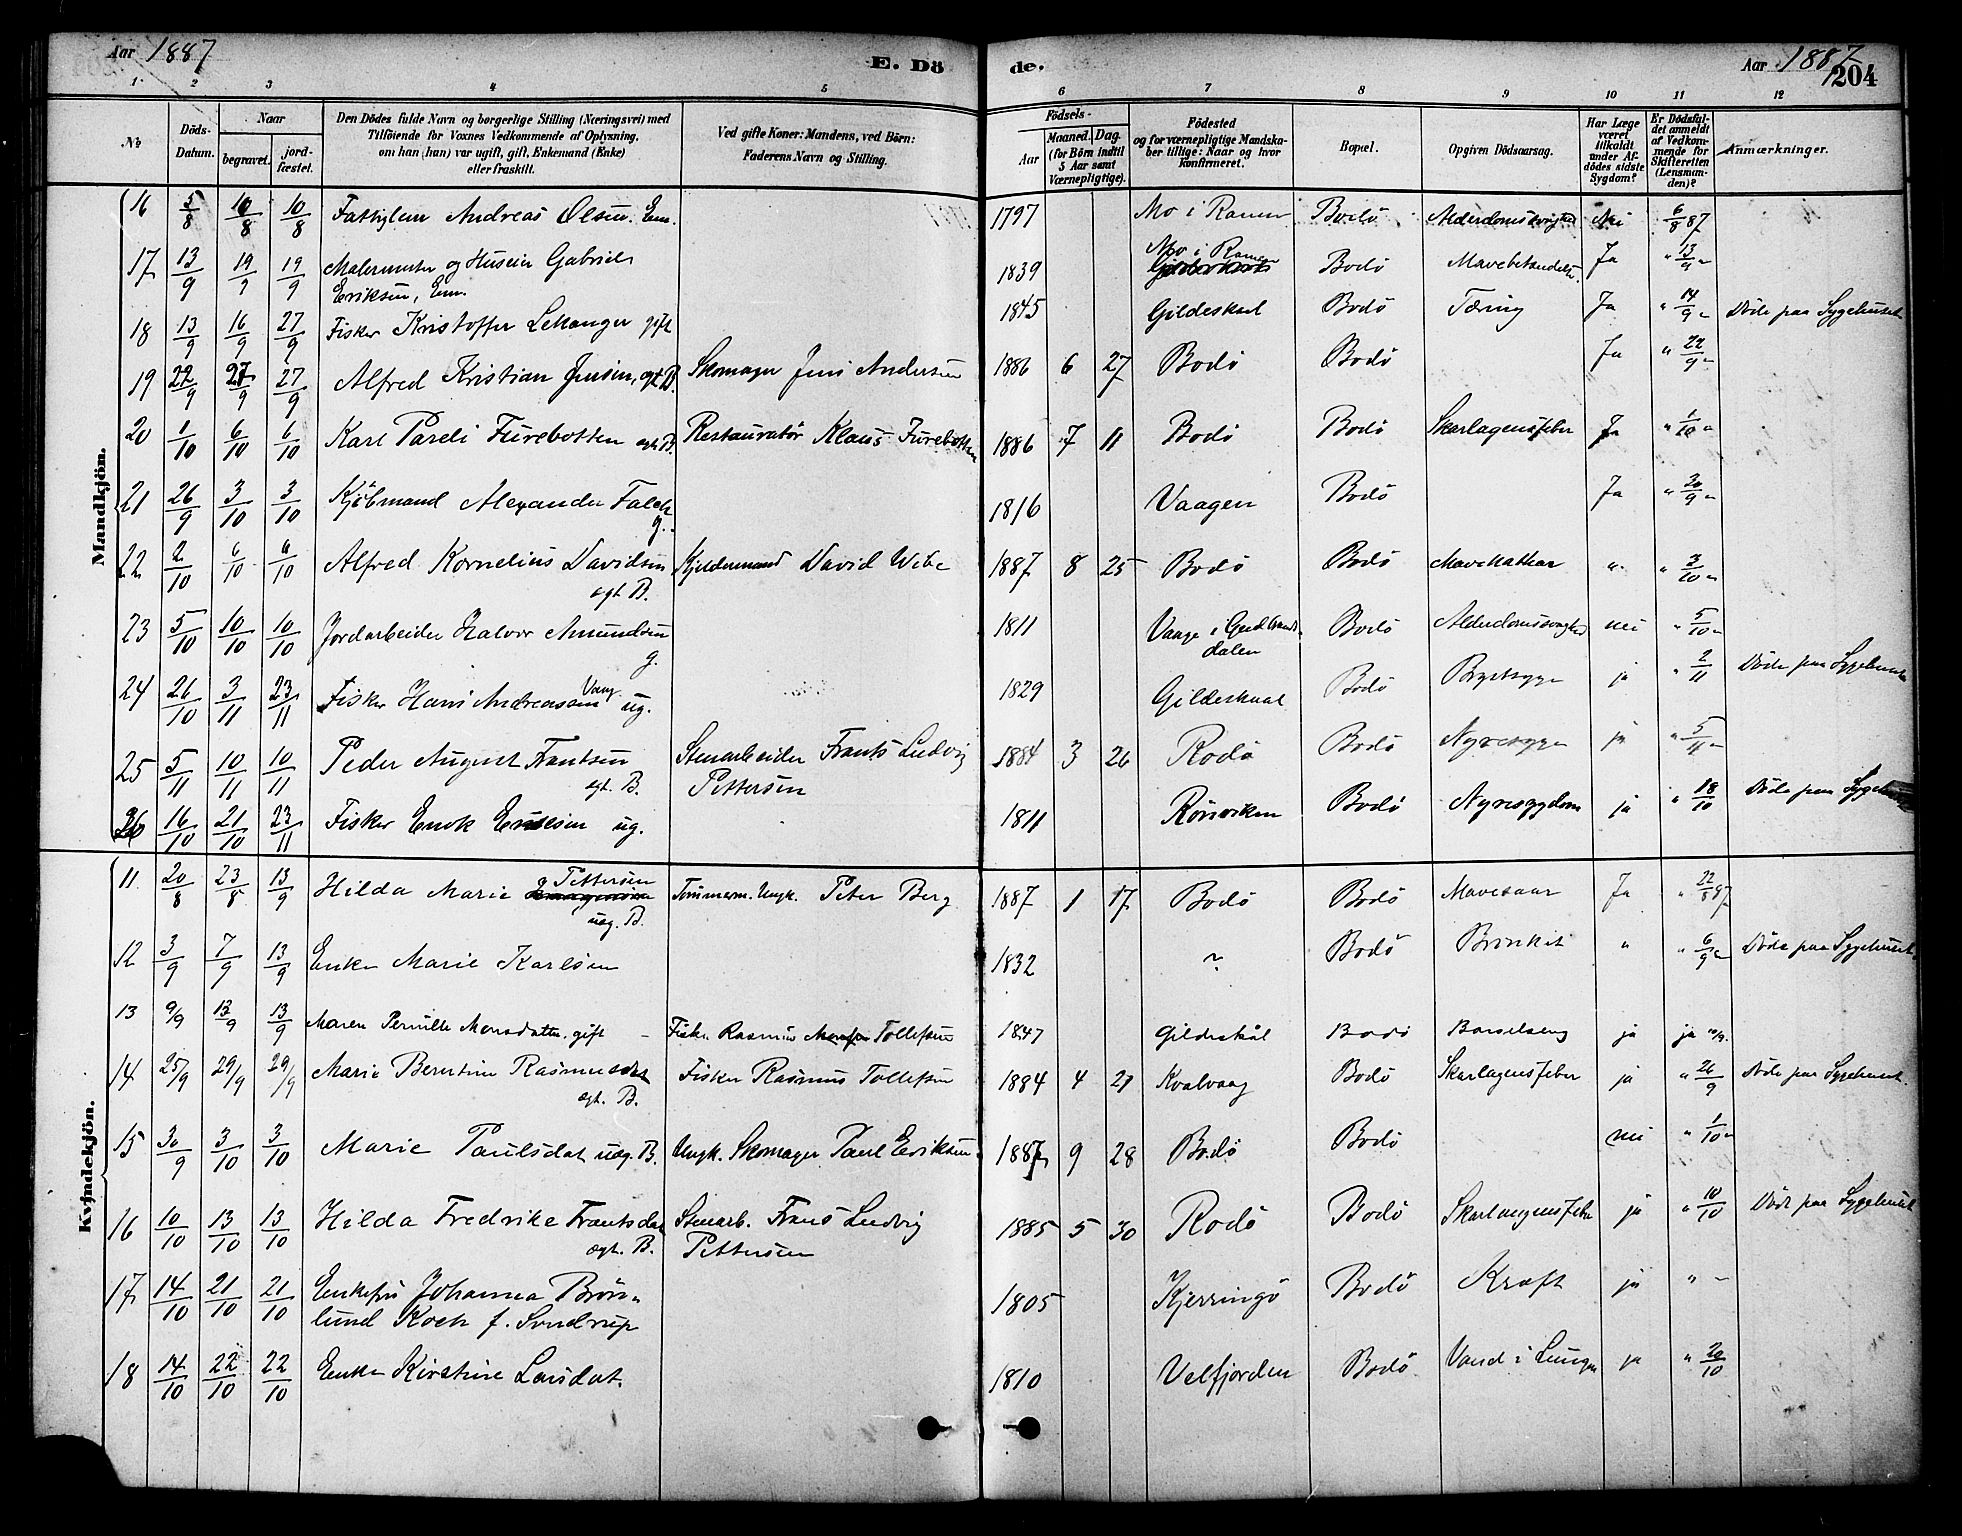 Aar 1887 E. Dö de. Aar 1887. 204
1 2 3 4 5 6 7 8 9 10 11 12
No Döds-Datum. Naar begravet. jordfæstet. Den Dödes fulde Navn og borgerlige Stilling (Næringsvei) med Tilföiende for Voxnes Vedkommende af Oplysning, om han (hun) var ugift, gift, Enkemand (Enke) eller fraskilt. Ved gifte Koner: Mandens, ved Börn: Faderens Navn og Stilling. Födsels- Aar Maaned. Dag. (for Börn indtil 5 Aar samt Værnepligtige). Födested og for værnepligtige Mandskaber tillige: Naar og hvor konfirmeret. Bopæl. Opgiven Dödsaarsag. Har Læge været tilkaldt under Afdödes sidste Sygdom? Er Dödsfaldet anmeldt af Vedkommende for Skifteretten (Lensmanden)? Anmærkninger.
Mandkjön.
16 5/8 10/8 10/8 Fattiglem Andreas Olsen. Em. 1797 Mo i Ranen Bodö Alderdomssvaghed Nei 6/8 87
17 13/9 19/9 19/9 Malermester og Huseier Gabriel Eriksen, Em. 1839 Mo i Ranen Bodö Ja " 13/9 "
18 13/9 16/9 27/9 Fisker Kristoffer Lekanger gift 1845 Gildeskaal Bodö Tæring Ja " 14/9 " Döde paa Sygehuset
19 22/9 27/9 27/9 Alfred Kristian Jensen, ægt. B. Skomager Jens Andersen 1886 6 27 Bodö Bodö Ja " 22/9 "
20 1/10 6/10 6/10 Karl Pareli Furebotten ægt. B. Restauratør Klaus Furebotten 1886 7 11 Bodö Bodö Skarlagensfeber Ja " 1/10 "
21 26/9 3/10 3/10 Kjöbmand Alexander Falch g. 1816 Vaagen Bodö Ja " 30/9 "
22 2/10 6/10 6/10 Alfred Kornelius Davidsen ægt. B. Kjeldermand David Wibe 1887 8 25 Bodö Bodö Mavekathar " " 3/10 "
23 5/10 10/10 10/10 Jordarbeider Halvor Amundsen g. 1811 Vaage i Gudbrandsdalen Bodö Alderdomssvaghed nei " 5/10 "
24 26/10 3/11 23/11 Fisker Hans Andreassen Vaag ug. 1829 Gildeskaal Bodö Brystsyge ja " 2/11 Döde paa Sygehuset
25 5/11 10/11 10/11 Peder August Frantsen ægt. B. Stenarbeider Frants Ludvig Pettersen 1884 3 26 Rodö Bodö Nyresyge ja " 5/11 "
26 16/10 21/10 23/11 Fisker Enok ug. 1811 Rörviken Bodö Nyresygdom ja " 18/10 Döde paa Sygehuset
Kvindekjön.
11. 20/8 23/8 13/9 Hilda Marie Pettersen uæg. B. Tömmerm. Ungk. Peter Berg 1887 1 17 Bodö Bodö Mavesaar Ja " 22/8 87
12 3/9 7/9 13/9 Enke Marie Karlsen 1832 ? Bodö " " 6/9 " Döde paa Sygehuset
13 9/9 13/9 13/9 Maren Pernille Monsdatter gift – Fisker Rasmus Tollefsen 1847 Gildeskål Bodö Barselseng ja ja 10/9.
14 25/9 29/9 29/9 Marie Berntine Rasmusdat ægt. B. Fisker Rasmus Tollefsen 1884 4 21 Kvalvaag Bodö Skarlagensfeber ja " 26/9 Döde paa Sygehuset.
15 30/9 3/10 3/10 Marie Paulsdat uæg. B. Ungk. Skomager Paul Eriksen 1887 9 28 Bodö Bodö nei " 1/10 "
16 10/10 13/10 13/10 Hilda Fredrike Frantsdat ægt. B. Stenarb. Frans Ludvig Pettersen 1885 5 30 Rodö Bodö Skarlagensfeber ja " 10/10 Döde paa Sygehuset
17 14/10 21/10 21/10 Enkefru Johanna Brönlund Koch f. Sundrup 1805 Kjerringö Bodö Kræft ja " "
18 14/10 22/10 22/10 Enke Kirstine Larsdat. 1810 Velfjorden Bodö Vand i Lungen ja " 20/10